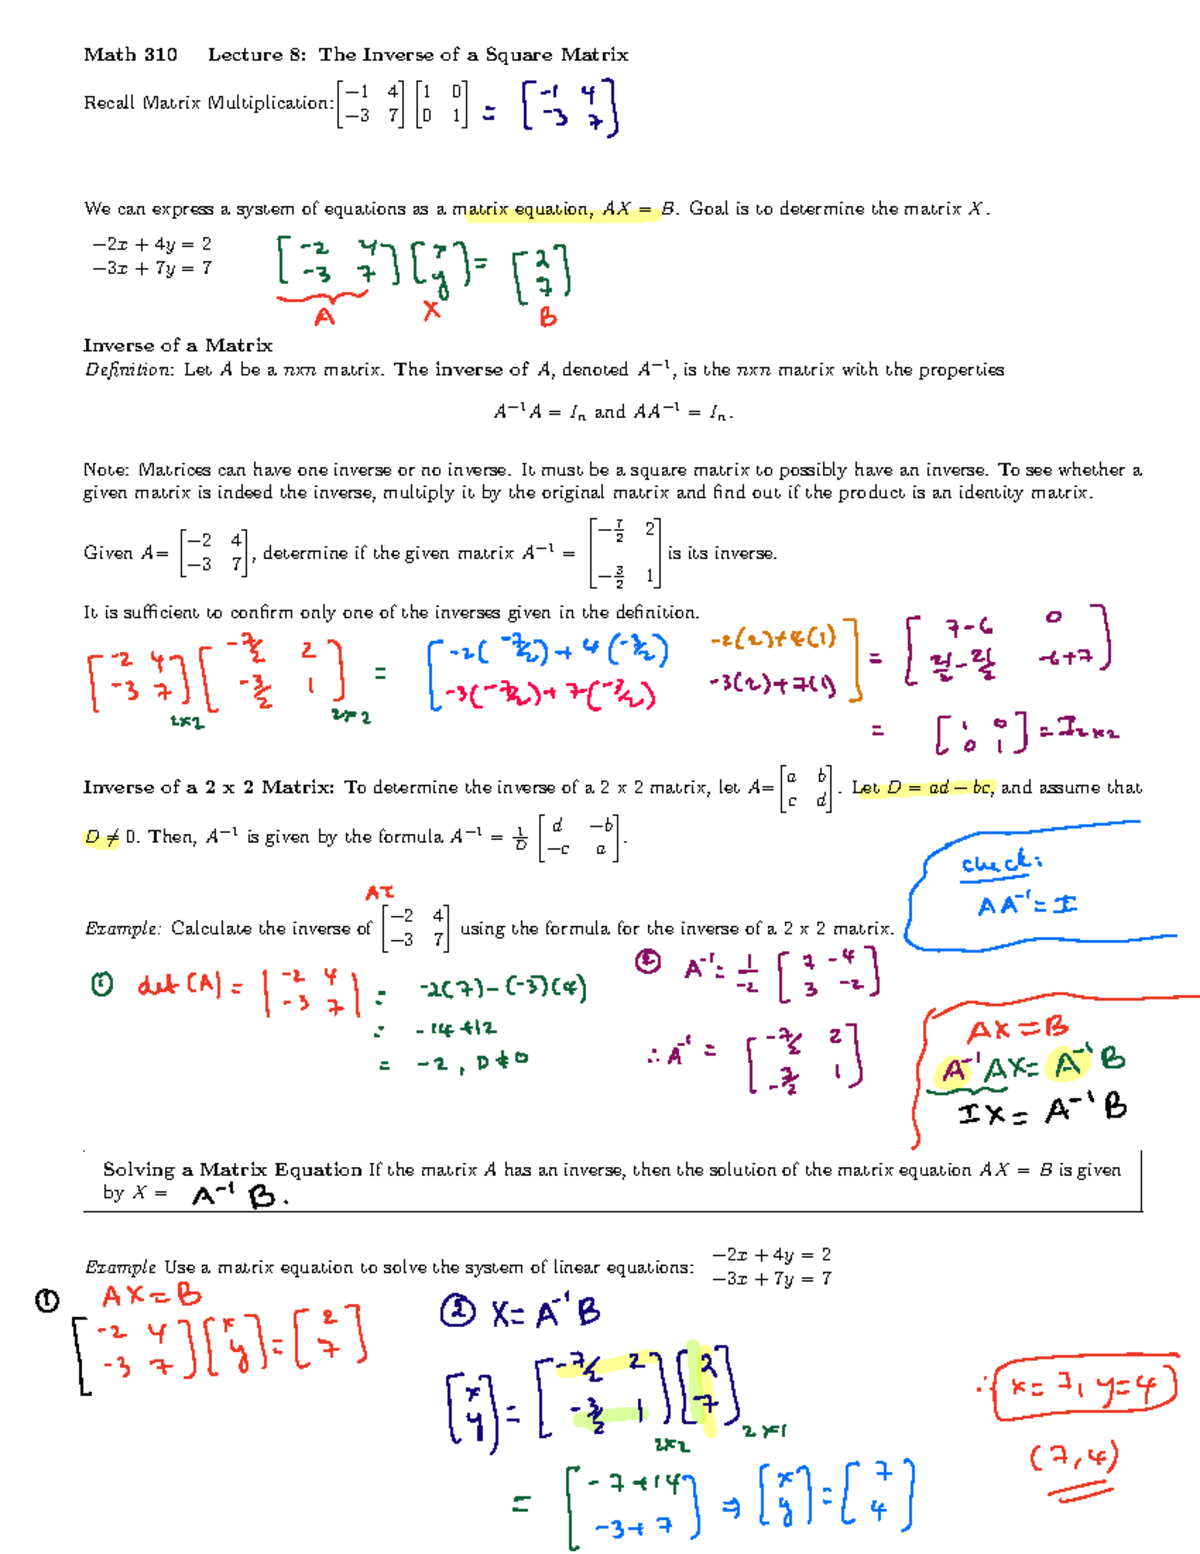 Math 310 Lecture 8: The Inverse of a Square Matrix
Recall Matrix Multiplication: [−1 4; −3 7] [1 0; 0 1] = [-1 4; -3 7]
We can express a system of equations as a matrix equation, AX = B. Goal is to determine the matrix X.
−2x + 4y = 2
−3x + 7y = 7
[-2 4; -3 7] [x; y] = [2; 7]
A X B
Inverse of a Matrix
Definition: Let A be a nxn matrix. The inverse of A, denoted A⁻¹, is the nxn matrix with the properties
A⁻¹A = Iₙ and AA⁻¹ = Iₙ.
Note: Matrices can have one inverse or no inverse. It must be a square matrix to possibly have an inverse. To see whether a
given matrix is indeed the inverse, multiply it by the original matrix and find out if the product is an identity matrix.
Given A= [−2 4; −3 7], determine if the given matrix A⁻¹ = [−7/2 2; −3/2 1] is its inverse.
It is sufficient to confirm only one of the inverses given in the definition.
[-2 4; -3 7] [-7/2 2; -3/2 1] = [-2(-7/2)+4(-3/2) -2(2)+4(1); -3(-7/2)+7(-3/2) -3(2)+7(1)] = [7-6 0; 21/2-21/2 -6+7]
2x2 2x2
= [1 0; 0 1] = I2x2
Inverse of a 2 x 2 Matrix: To determine the inverse of a 2 x 2 matrix, let A= [a b; c d]. Let D = ad − bc, and assume that
D ≠ 0. Then, A⁻¹ is given by the formula A⁻¹ = 1/D [d −b; −c a].
check:
AA⁻¹ = I
A=
Example: Calculate the inverse of [−2 4; −3 7] using the formula for the inverse of a 2 x 2 matrix.
① det(A) = |-2 4; -3 7| = -2(7)-(-3)(4)
= -14+12
= -2, D≠0
② A⁻¹ = 1/-2 [7 -4; 3 -2]
∴ A⁻¹ = [-7/2 2; -3/2 1]
AX=B
A⁻¹AX = A⁻¹B
IX = A⁻¹B
Solving a Matrix Equation If the matrix A has an inverse, then the solution of the matrix equation AX = B is given
by X = A⁻¹B.
Example Use a matrix equation to solve the system of linear equations: −2x + 4y = 2
−3x + 7y = 7
① AX=B
[-2 4; -3 7] [x; y] = [2; 7]
② X=A⁻¹B
[x; y] = [-7/2 2; -3/2 1] [2; 7]
2x2 2x1
= [-7+14; -3+7] ⇒ [x; y] = [7; 4]
∴ x=7, y=4
(7,4)